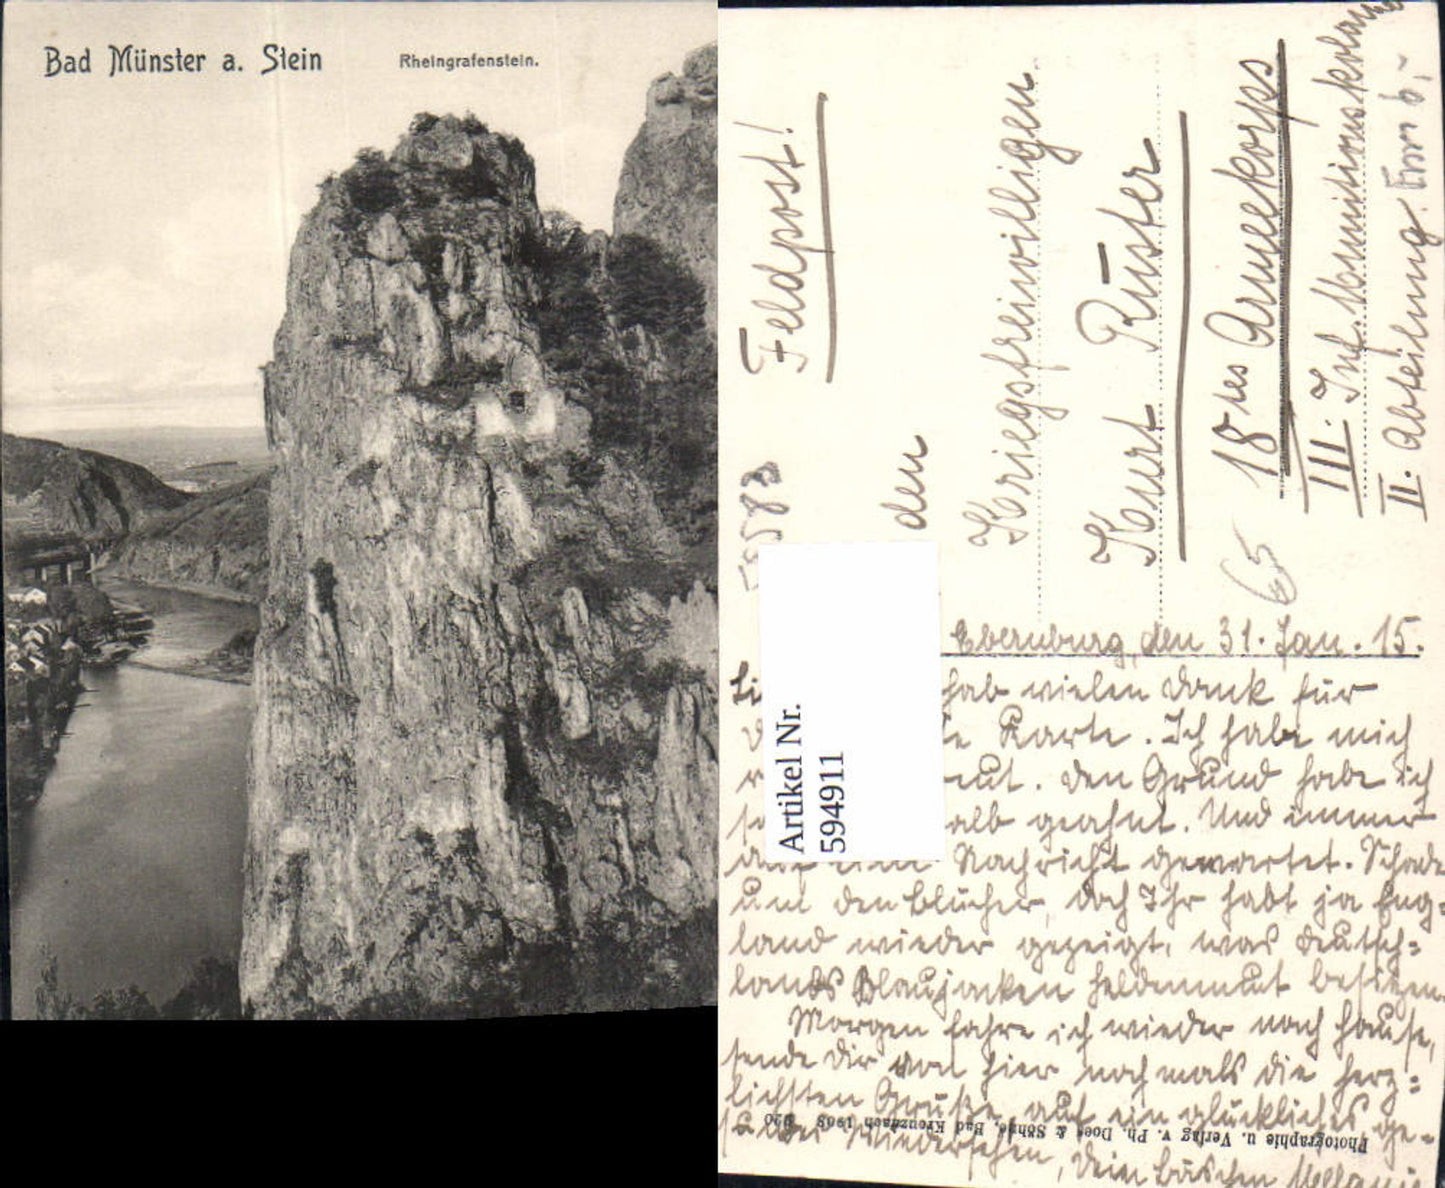 Bad Münster a. Stein
Rheingrafenstein.
Feldpost!
den
Kriegsfreiwilligen
Kurt Rüster
18tes Armeekorps
III. Inf. Munitionskolonne
II. Abteilung.
65
Artikel Nr.
594911
Ebernburg, den 31. Jan. 15.
hab vielen Dank für
Karte. Ich habe mich
Den Grund habe ich
geahnt. Und immer
auf eine Nachricht gewartet. Schade
um den Blücher, doch Ihr habt ja Eng-
land wieder gezeigt, was Deutsch-
lands Blaujacken Heldenmut besitzen.
Morgen fahre ich wieder nach Hause,
sende Dir von hier nochmals die herz-
lichsten Grüße, auf ein glückliches ge-
Wiedersehen, Dein Bäschen Melanie
Photographie u. Verlag v. Ph. Doel & Söhne, Bad Kreuznach 1908